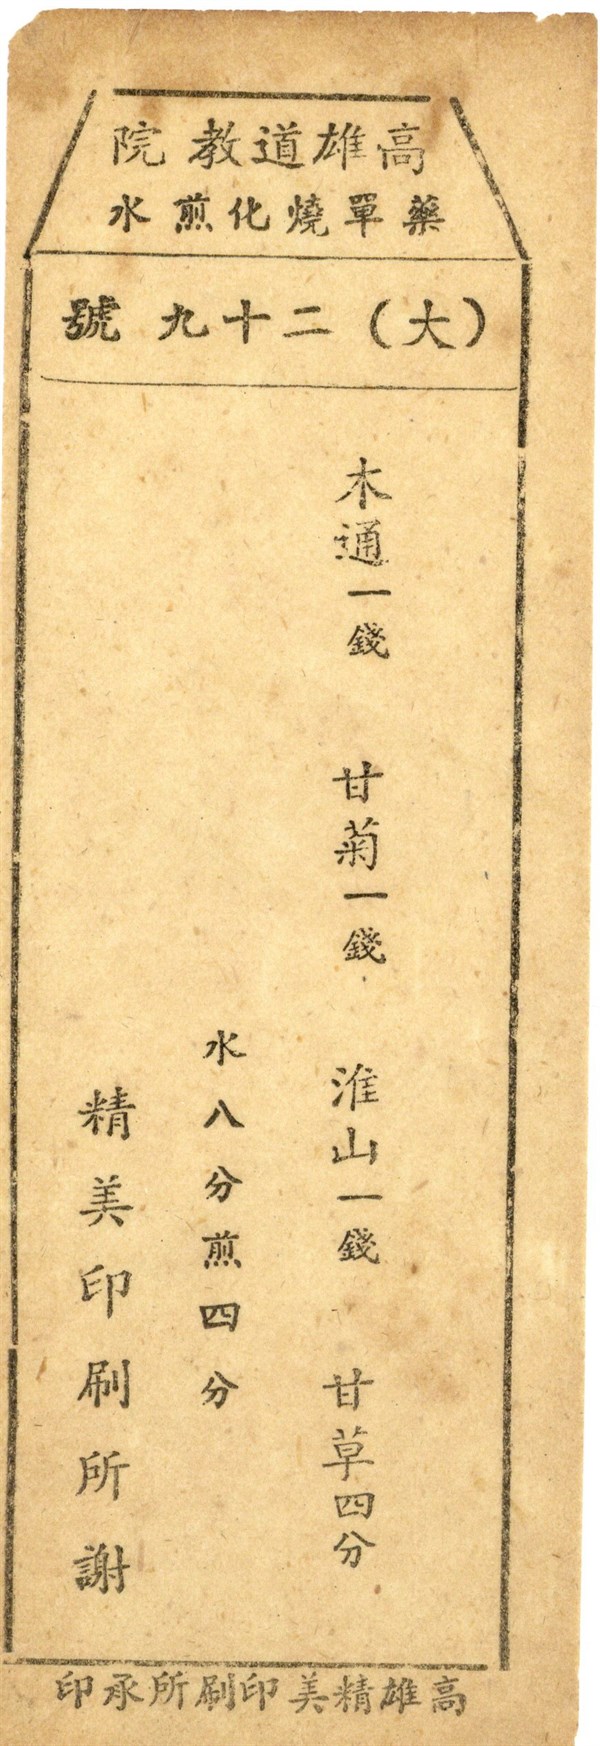 高雄道教院
藥單燒化煎水
（大）二十九號
木通一錢 甘菊一錢 淮山一錢 甘草四分
水八分煎四分
精美印刷所謝
高雄精美印刷所承印